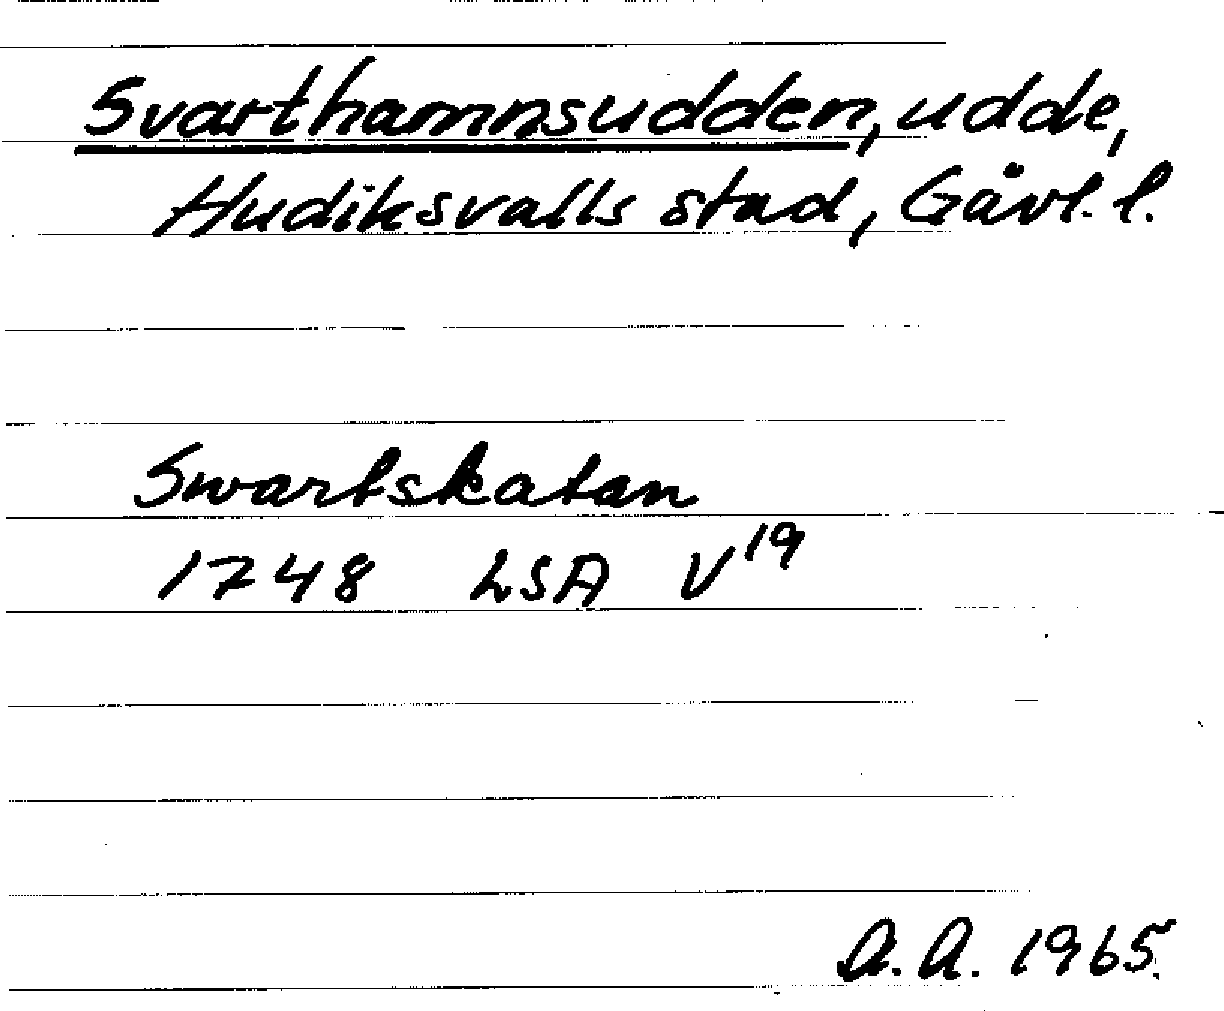 Svarthamnsudden, udde,
Hudiksvalls stad, Gävl. l.
Swartskatan
1748 LSA V¹⁹
A.A. 1965.